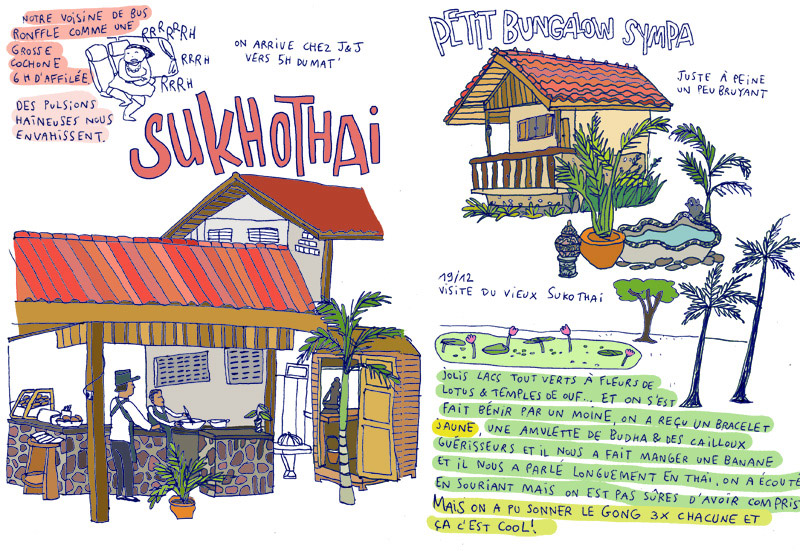 NOTRE VOISINE DE BUS
RONFFLE COMME UNE
GROSSE
COCHONE
6H D'AFFILÉE.
DES PULSIONS
HAÎNEUSES NOUS
ENVAHISSENT.
RRRRRRH
RRRH
RRRH
ON ARRIVE CHEZ J&J
VERS 5H DU MAT'
SUKHOTHAI
PETIT BUNGALOW SYMPA
JUSTE À PEINE
UN PEU BRUYANT
19/12
VISITE DU VIEUX SUKOTHAI
JOLIS LACS TOUT VERTS À FLEURS DE
LOTUS & TEMPLES DE OUF... ET ON S'EST
FAIT BÉNIR PAR UN MOINE, ON A REÇU UN BRACELET
JAUNE, UNE AMULETTE DE BUDHA & DES CAILLOUX
GUÉRISSEURS ET IL NOUS A FAIT MANGER UNE BANANE
ET IL NOUS A PARLÉ LONGUEMENT EN THAI, ON A ÉCOUTÉ
EN SOURIANT MAIS ON EST PAS SÛRES D'AVOIR COMPRIS
MAIS ON A PU SONNER LE GONG 3X CHACUNE ET
ÇA C'EST COOL!